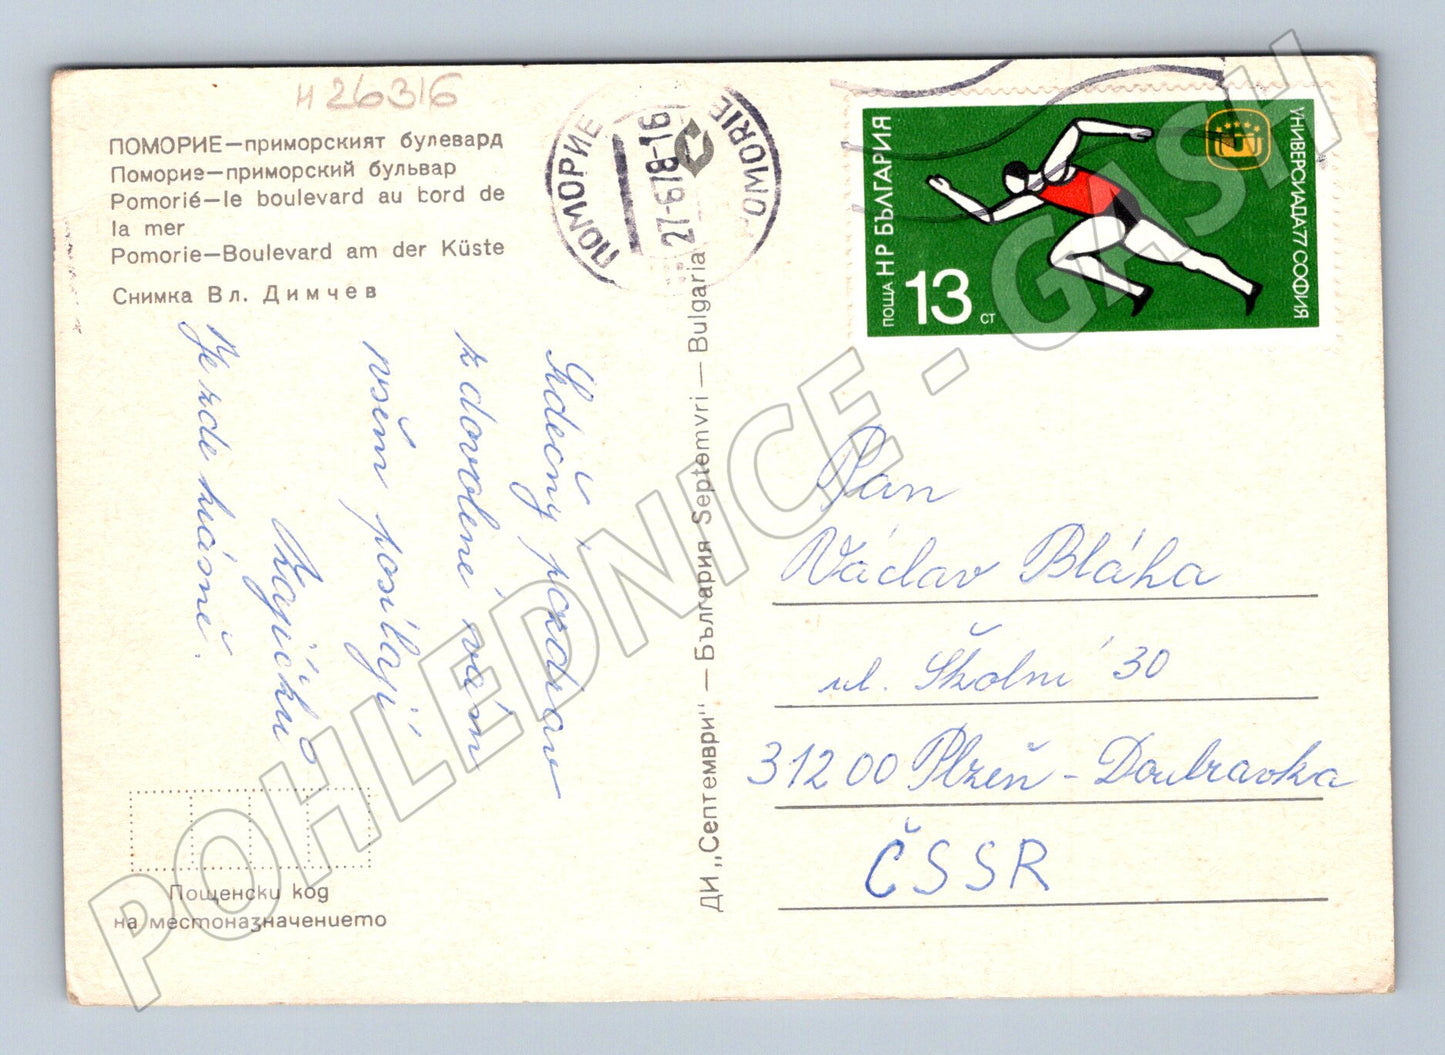 н 26316
ПОМОРИЕ—приморският булевард
Помориэ—приморский бульвар
Pomorié—le boulevard au bord de
la mer
Pomorie—Boulevard am der Küste
Снимка Вл. Димчев
ПОМОРИЕ
27-6.78-16
POMORIE
ПОЩА НР БЪЛГАРИЯ
13 ст
УНИВЕРСИАДА'77 СОФИЯ
Srdečný pozdrav
z dovolené vám
všem posílají
Krajíčků
Je zde krásně.
ДИ „Септември" — България Septemvri — Bulgaria
Pan
Václav Bláha
ul. Školní 30
312 00 Plzeň - Doubravka
ČSSR
Пощенски код
на местоназначението
POHLEDNICE - GASH